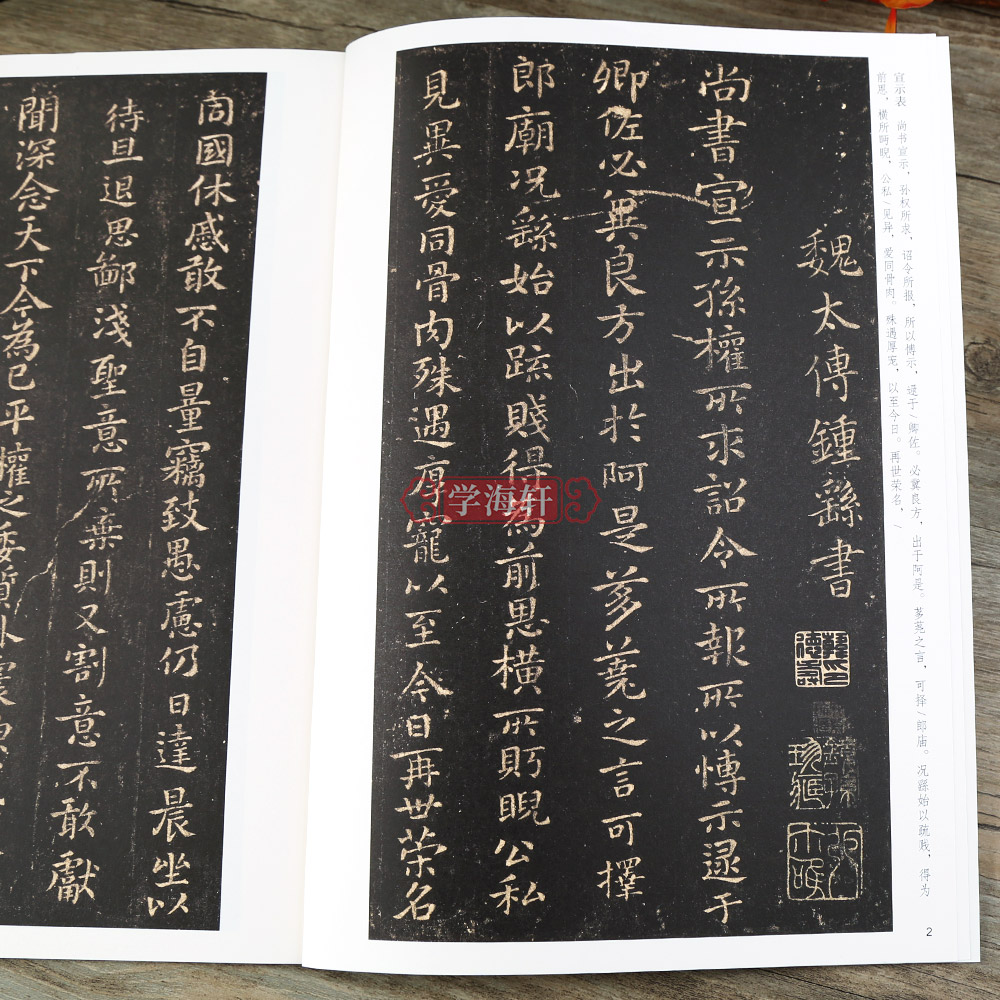 宣示表 尚书宣示，孙权所求，诏令所报，所以博示，逮于/卿佐。必冀良方，出于阿是。芻荛之言，可择/郎庙。况繇始以疏贱，得为
前恩，横所眄睨，公私/见异，爱同骨肉。殊遇厚宠，以至今日。再世荣名，/
魏太傅鍾繇書
尚書宣示孫權所求詔令所報所以博示逯于
卿佐必冀良方出於阿是芻蕘之言可擇
郎廟況繇始以疏賤得為前恩橫所眄睨公私
見異愛同骨肉殊遇厚寵以至今日再世榮名
2
同國休慼敢不自量竊致愚慮仍日達晨坐以
待旦退思鄙淺聖意所棄則又割意不敢獻
聞深念天下今為已平權之委質外震
学海轩